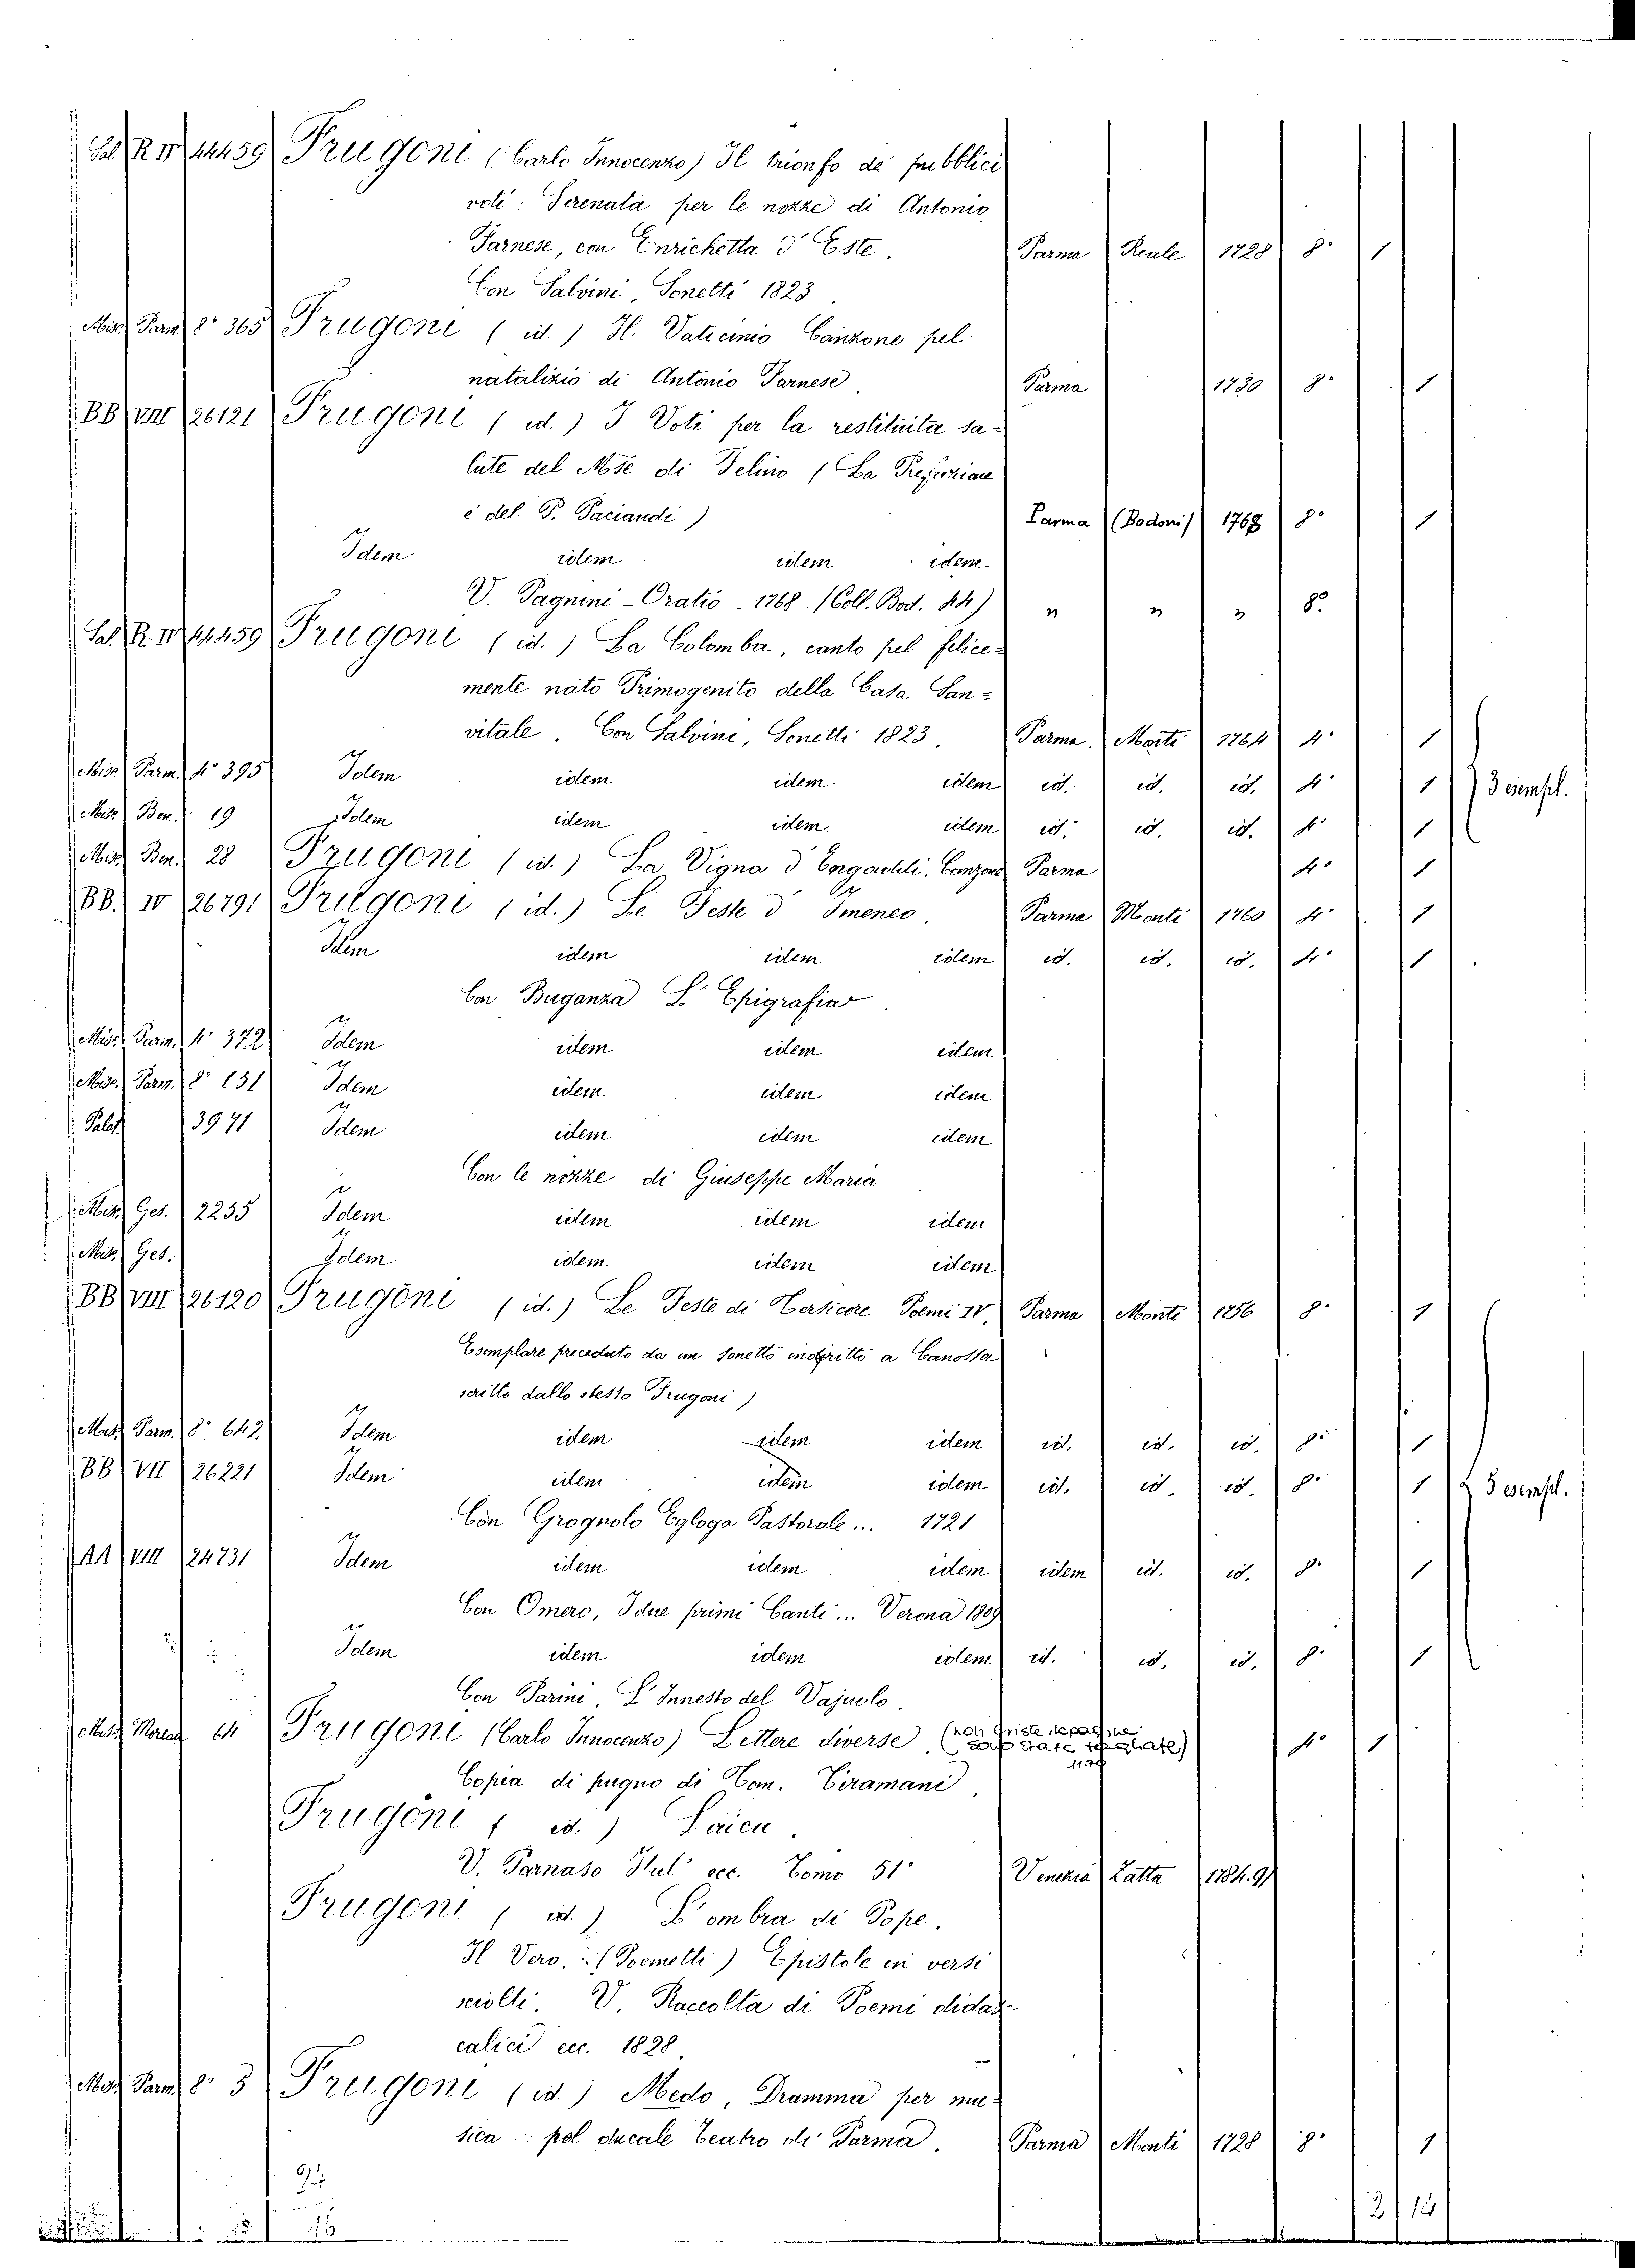 Sal. R. IV 44459 Frugoni (Carlo Innocenzo) Il trionfo de' pubblici
voti: Serenata per le nozze di Antonio
Farnese, con Enrichetta d'Este. Parma Reale 1728 8° 1
Con Salvini, Sonetti 1823
Misc. Parm. 8° 365 Frugoni (id.) Il Vaticinio Canzone pel
natalizio di Antonio Farnese Parma 1730 8° 1
BB VIII 26121 Frugoni (id.) I Voti per la restituita sa-
lute del Mse di Felino (La Prefazione
è del P. Paciaudi) Parma (Bodoni) 1768 8° 1
Idem idem idem idem
V. Pagnini - Oratio - 1768. (Coll. Bod. 44) " " " 8°
Sal. R. IV 44459 Frugoni (id.) La Colomba, canto pel felice-
mente nato Primogenito della Casa San=
vitale. Con Salvini, Sonetti 1823. Parma. Monti 1764 4° 1
Misc. Parm. 4° 395 Idem idem idem idem id. id. id. 4° 1 3 esempl.
Misc. Ben. 19 Idem idem idem idem id. id. id. 4° 1
Misc. Ben. 28 Frugoni (id.) La Vigna d'Engaddi. Canzone Parma 4° 1
BB. IV 26791 Frugoni (id.) Le Feste d'Imeneo. Parma Monti 1760 4° 1
Idem idem idem idem id. id. id. 4° 1
Con Buganza L'Epigrafia
Misc. Parm. 4° 372 Idem idem idem idem
Misc. Parm. 8° 151 Idem idem idem idem
Palat. 3971 Idem idem idem idem
Con le nozze di Giuseppe Maria
Misc. Ges. 2235 Idem idem idem idem
Misc. Ges. Idem idem idem idem
BB VIII 26120 Frugoni (id.) Le Feste di Tersicore Poemi IV. Parma Monti 1756 8° 1
Esemplare preceduto da un sonetto indiritto a Canossa
scritto dallo stesso Frugoni)
Misc. Parm. 8° 642 Idem idem idem idem id. id. id. 8° 1
BB VII 26221 Idem idem idem idem id. id. id. 8° 1 5 esempl.
Con Grognolo Egloga Pastorale... 1721
AA VIII 24731 Idem idem idem idem idem id. id. 8° 1
Con Omero, I due primi Canti... Verona 1809
Idem idem idem idem id. id. id. 8° 1
Con Parini, L'Innesto del Vajuolo.
Misc. 64 Frugoni (Carlo Innocenzo) Lettere diverse. 4° 1
Copia di pugno di Tom. Tiramani
Frugoni (id.) Lirica.
V. Parnaso Ital. ecc. Tomo 51° Venezia Zatta 1784.91
Frugoni (id.) L'ombra di Pope.
Il Vero. (Poemetti) Epistole in versi
sciolti. V. Raccolta di Poemi didas-
calici ecc. 1828
Misc. Parm. 8° 3 Frugoni (id.) Medo, Dramma per mu-
sica pel ducale Teatro di Parma. Parma Monti 1728 8° 1